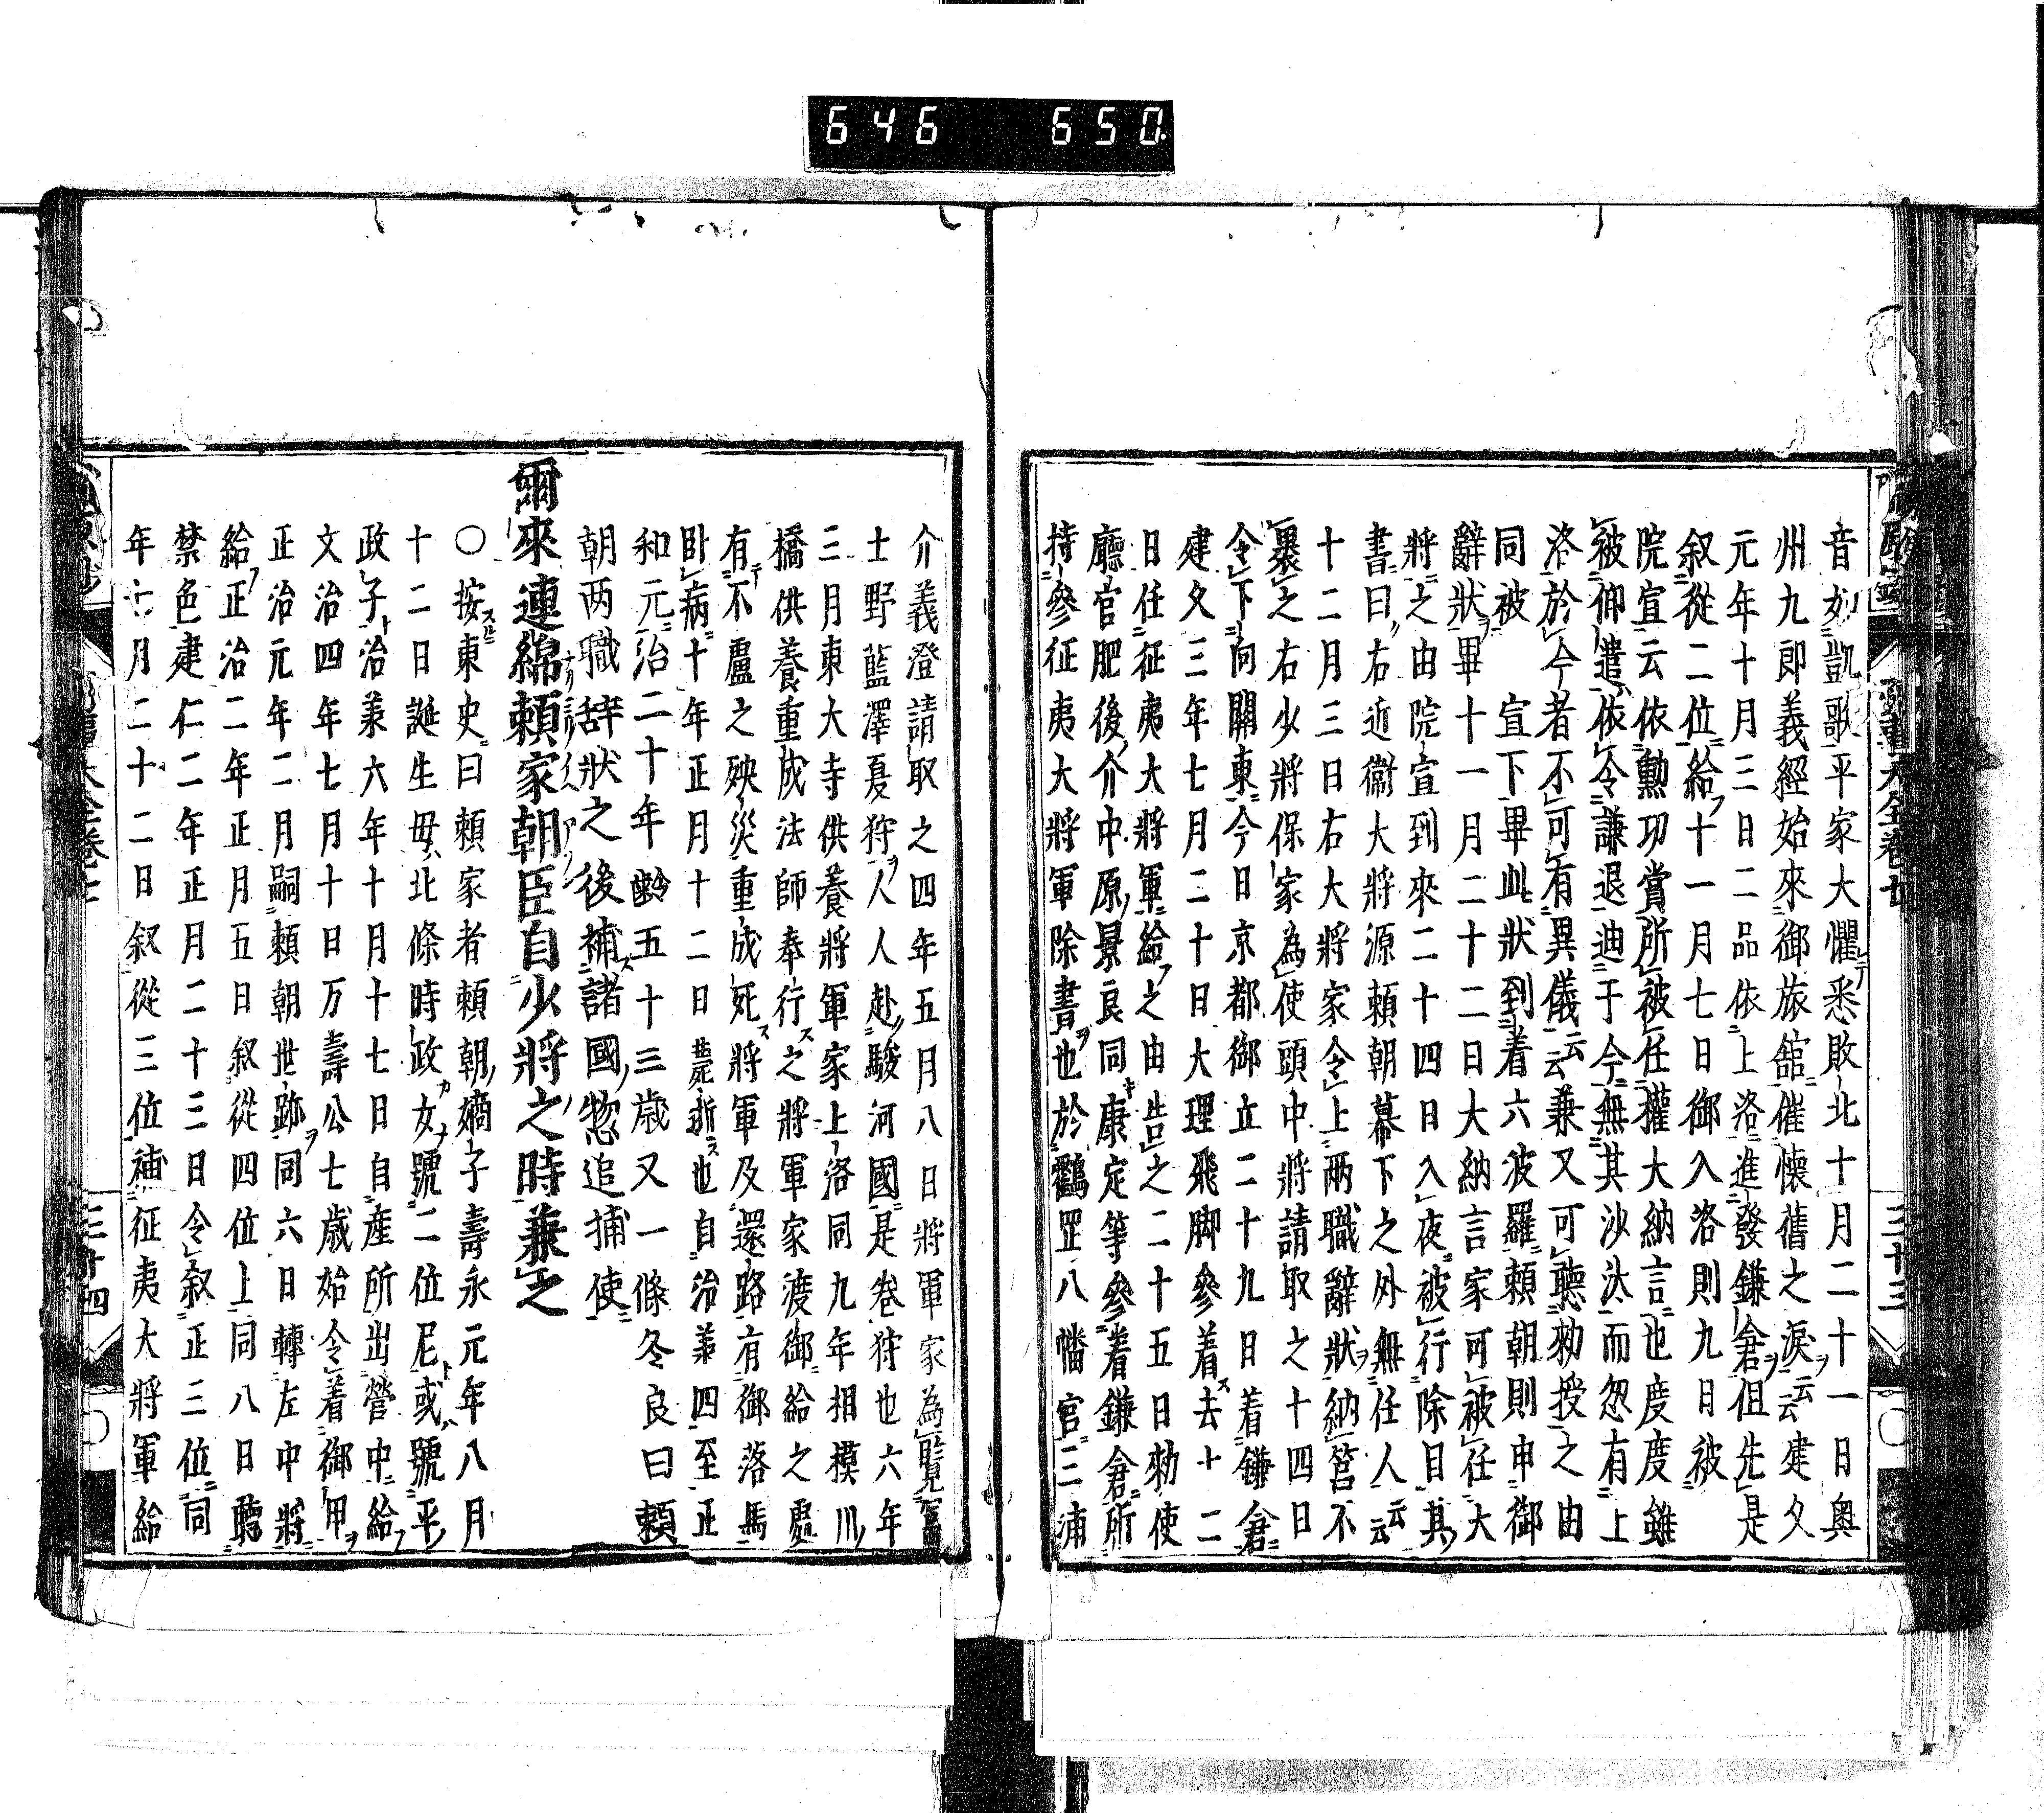 646 650
音如凱歌平家大懼悉敗北十月二十一日奥
州九即義經始來御旅舘催懷舊之涙云云建久
元年十月三日二品依上洛進發鎌倉但先是
叙從二位給十一月七日御入洛則九日被
院宣云依勲功賞所被任權大納言也度度雖
被仰遣依令謙退迪于今無其沙汰而忽有上
洛於今者不可有異儀云云兼又可聽勅授之由
同被 宣下畢此狀到着六波羅頼朝則申御
辭狀畢十一月二十二日大納言家可被任大
將之由院宣到來二十四日入夜被行除目其
書曰右近衞大將源頼朝幕下之外無任人云云
十二月三日右大將家令上兩職辭狀納筥不
裹之右少將保家為使頭中將請取之十四日
令下向關東今日京都御立二十九日着鎌倉
建久三年七月二十日大理飛脚參着去十二
日任征夷大將軍給之由告之二十五日勅使
廳官肥後介中原景良同康定等參着鎌倉所
持參征夷大將軍除書也於鸖罡八幡宮三浦
介義澄請取之四年五月八日將軍家為覧富
士野藍澤夏狩人人赴駿河國是卷狩也六年
三月東大寺供養將軍家上洛同九年相模川
橋供養重成法師奉行之將軍家渡御給之處
有不盧之殃災重成死將軍及還路有御落馬
臥病十年正月十二日薨逝也自治羕四至正
和元治二十年齡五十三歳又一條冬良曰頼
朝两職辞狀之後補諸國惣追捕使
爾來連綿頼家朝臣自少將之時兼之
○按東史曰頼家者頼朝嫡子壽永元年八月
十二日誕生毋北條時政女號二位尼或號平
政子治羕六年十月十七日自産所出營中給
文治四年七月十日万壽公七歳始令着御甲
正治元年二月嗣頼朝世跡同六日轉左中將
給正治二年正月五日叙從四位上同八日聽
禁色建仁二年正月二十三日令叙正三位同
年七月二十二日叙從三位補征夷大將軍給